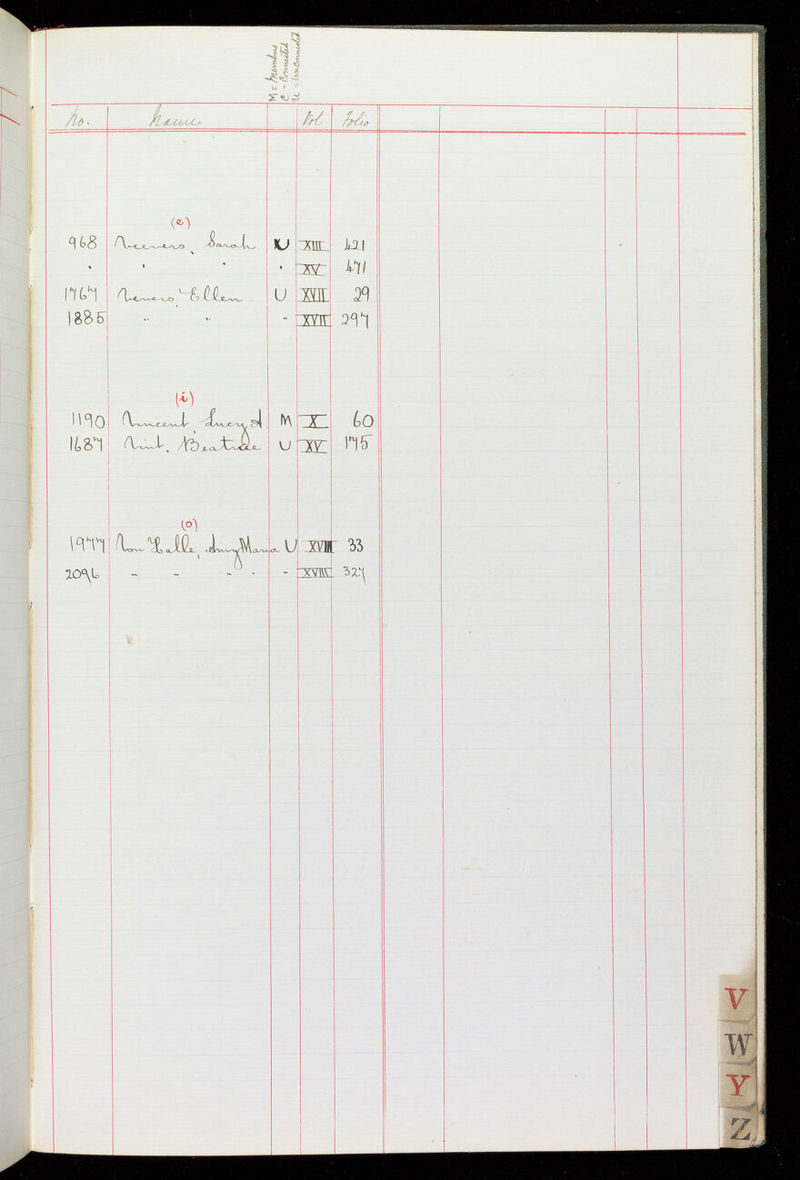 M = Members
C = Connected
U = Unconnected
No. Name Vol Folio
(e)
968 Veevers, Sarah U XIII 421
" " " " XV 471
1767 Vevers, Ellen U XVII 29
1885 " " " XVII 297
(i)
1190 Vincent, Lucy A M X 60
1687 Vint, Beatrice U XV 175
(o)
1977 Von Halle, Amy Maria U XVIII 33
2096 " " " " " XVIII 327
V
W
Y
Z